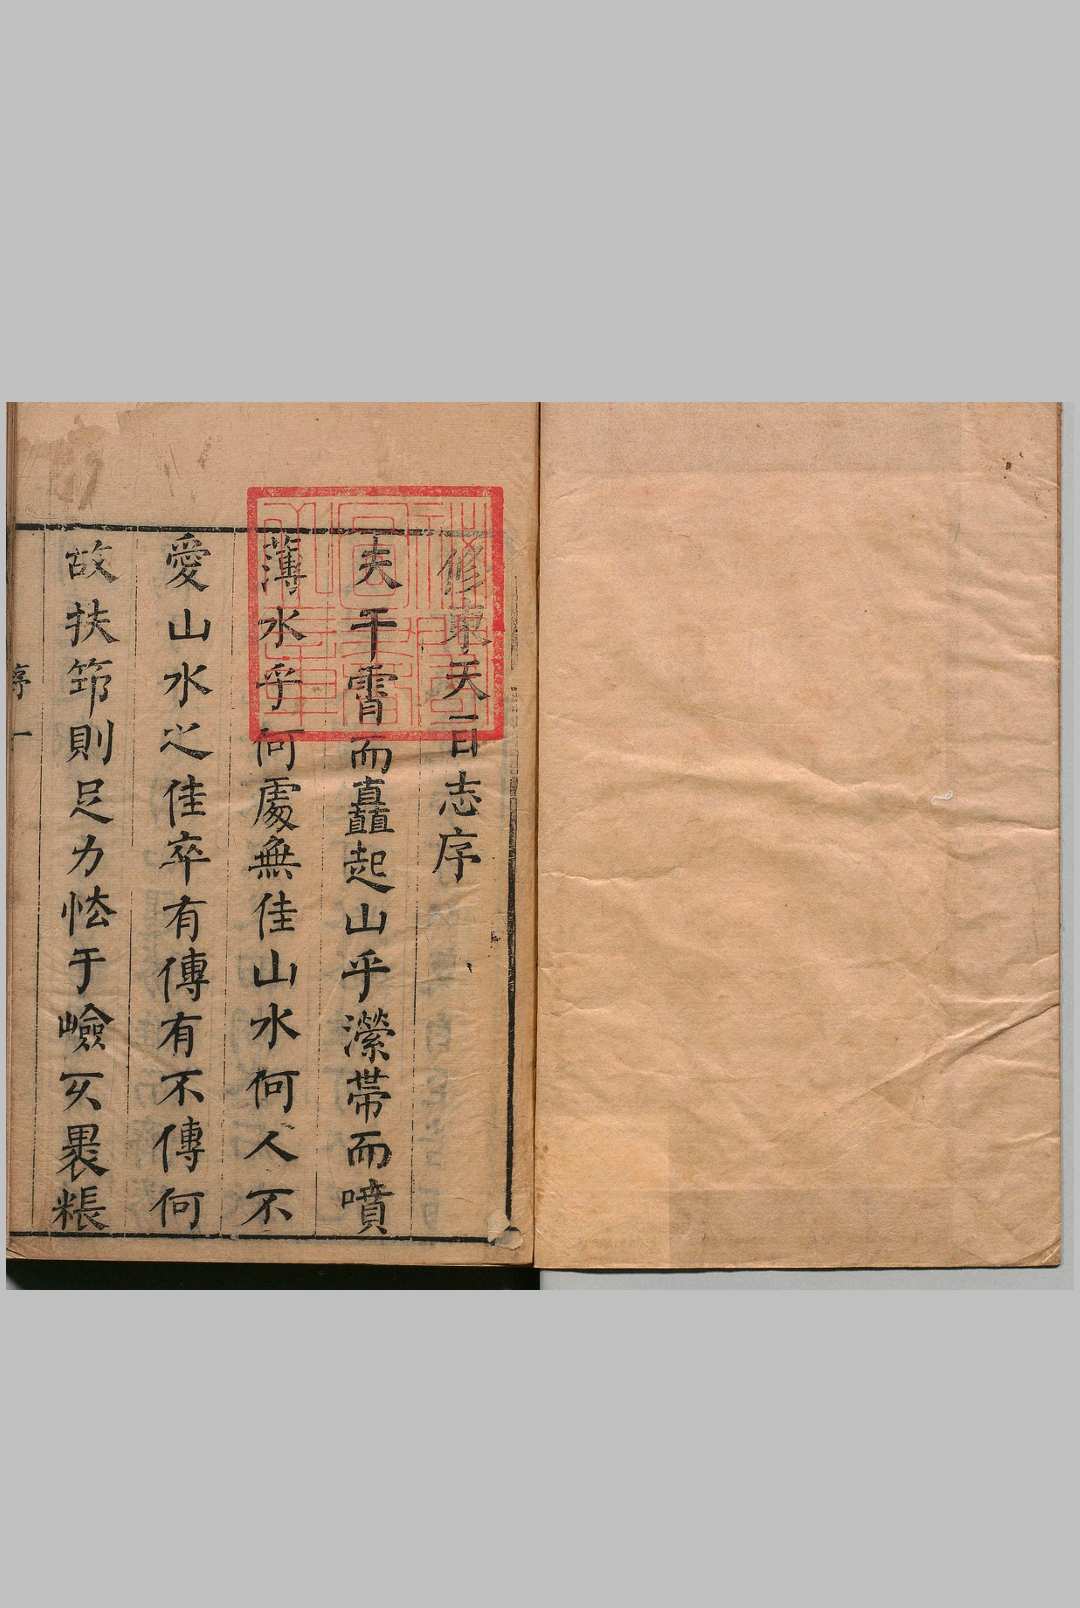 修東天目志序
夫干霄而矗起山乎瀠帶而噴
薄水乎何處無佳山水何人不
愛山水之佳卒有傳有不傳何
故扶筇則足力怯于嶮仄裹粻
序 一
秘閣圖書之章